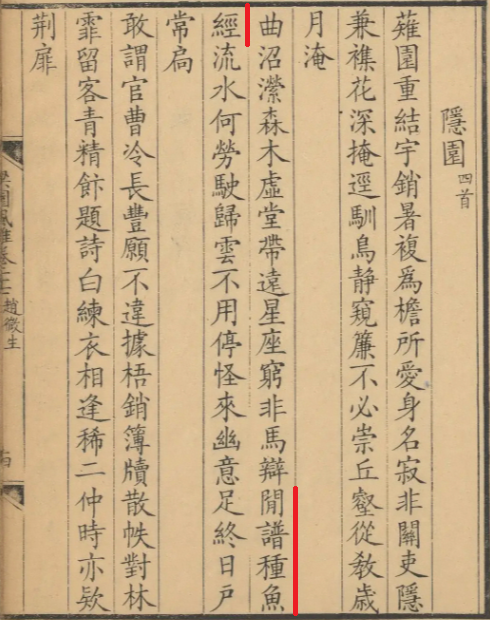 隱園四首
薙園重結宇銷暑複爲檐所愛身名寂非關吏隱
兼襍花深掩逕馴鳥静窺簾不必崇丘壑從教歲
月淹
曲沼瀠森木虛堂帶遠星座窮非馬辯閒譜種魚
經流水何勞駛歸雲不用停怪來幽意足終日戶
常扃
敢謂官曹冷長豐願不違據梧銷簿牘散帙對林
霏留客青精飰題詩白練衣相逢稀二仲時亦欵
荆扉
園風雅卷
趙微生